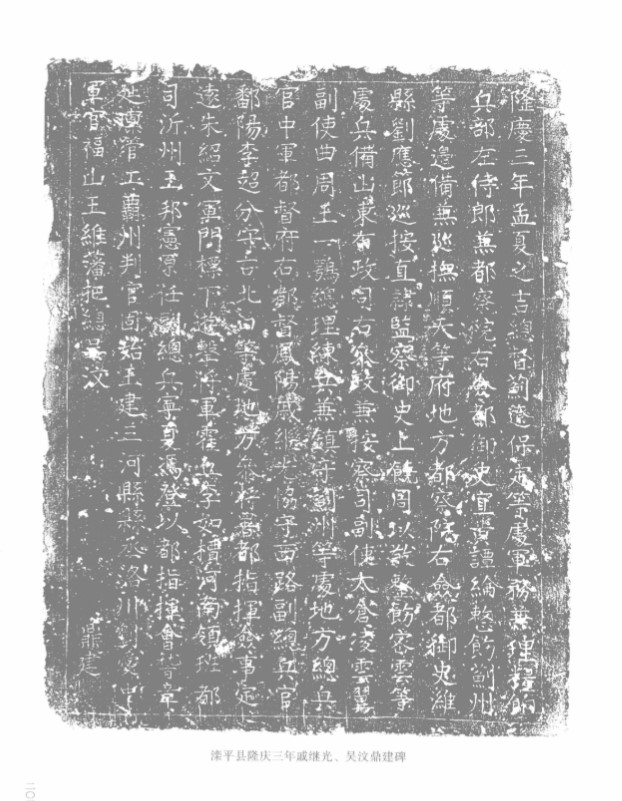 隆慶三年孟夏之吉總督薊遼保定等處軍務兼理糧餉
兵部左侍郎兼都察院右僉都御史宜黃譚綸整飭薊州
等處邊備兼巡撫順天等府地方都察院右僉都御史維
縣劉應節巡按直隸監察御史上饒周以敬整飭密雲等
處兵備山東布政司右參政兼按察司副使太倉凌雲翼
副使曲周王一鶚總理練兵兼鎮守薊州等處地方總兵
官中軍都督府右都督鳳陽戚繼光協守西路副總兵官
鄱陽李超分守古北口等處地方參將署都指揮僉事定
遠朱紹文軍門標下遊擊將軍霍 李如檟河南領班都
司沂州王邦憲原任副總兵寧夏馮登以都指揮 章
延 管工薊州判官 王建三河縣縣丞洛川
軍官福山王維藩把總吳汶 鼎建
滦平县隆庆三年戚继光、吴汶鼎建碑
二〇